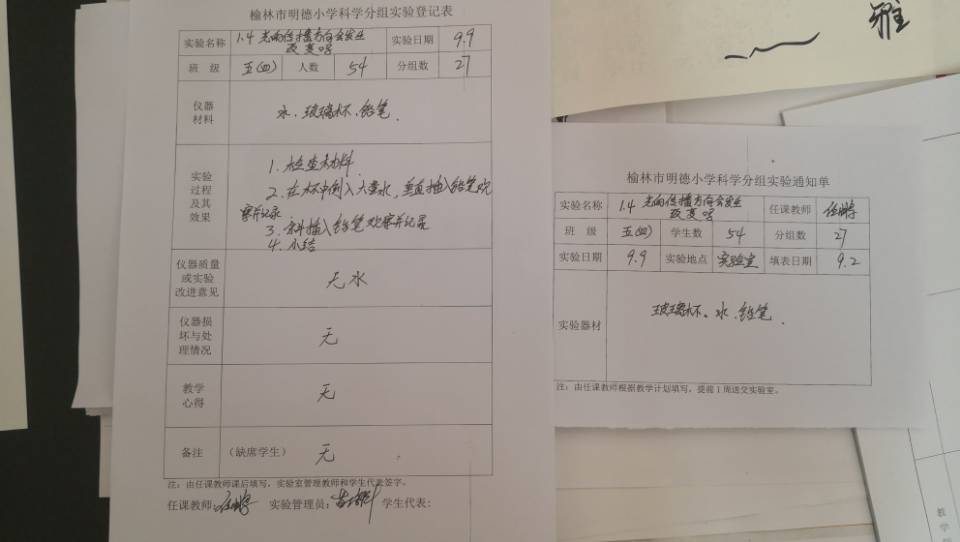 榆林市明德小学科学分组实验登记表
实验名称 1.4 光的传播方向会发生改变吗 实验日期 9.9
班 级 五(四) 人数 54 分组数 27
仪器材料 水、玻璃杯、铅笔.
实验过程及其效果
1. 检查材料
2. 在杯中倒入大量水,垂直插入铅笔观
察并记录
3. 斜插入铅笔观察并记录
4. 小结
仪器质量或实验改进意见 无水
仪器损坏与处理情况 无
教学心得 无
备注 (缺席学生) 无
注:由任课教师课后填写,实验室管理教师和学生代表签字。
任课教师: 实验管理员: 学生代表:
雅
榆林市明德小学科学分组实验通知单
实验名称 1.4 光的传播方向会发生改变吗 任课教师
班 级 五(四) 学生数 54 分组数 27
实验日期 9.9 实验地点 实验室 填表日期 9.2
实验器材 玻璃杯、水、铅笔.
注:由任课教师根据教学计划填写,提前1周送交实验室。
教
学